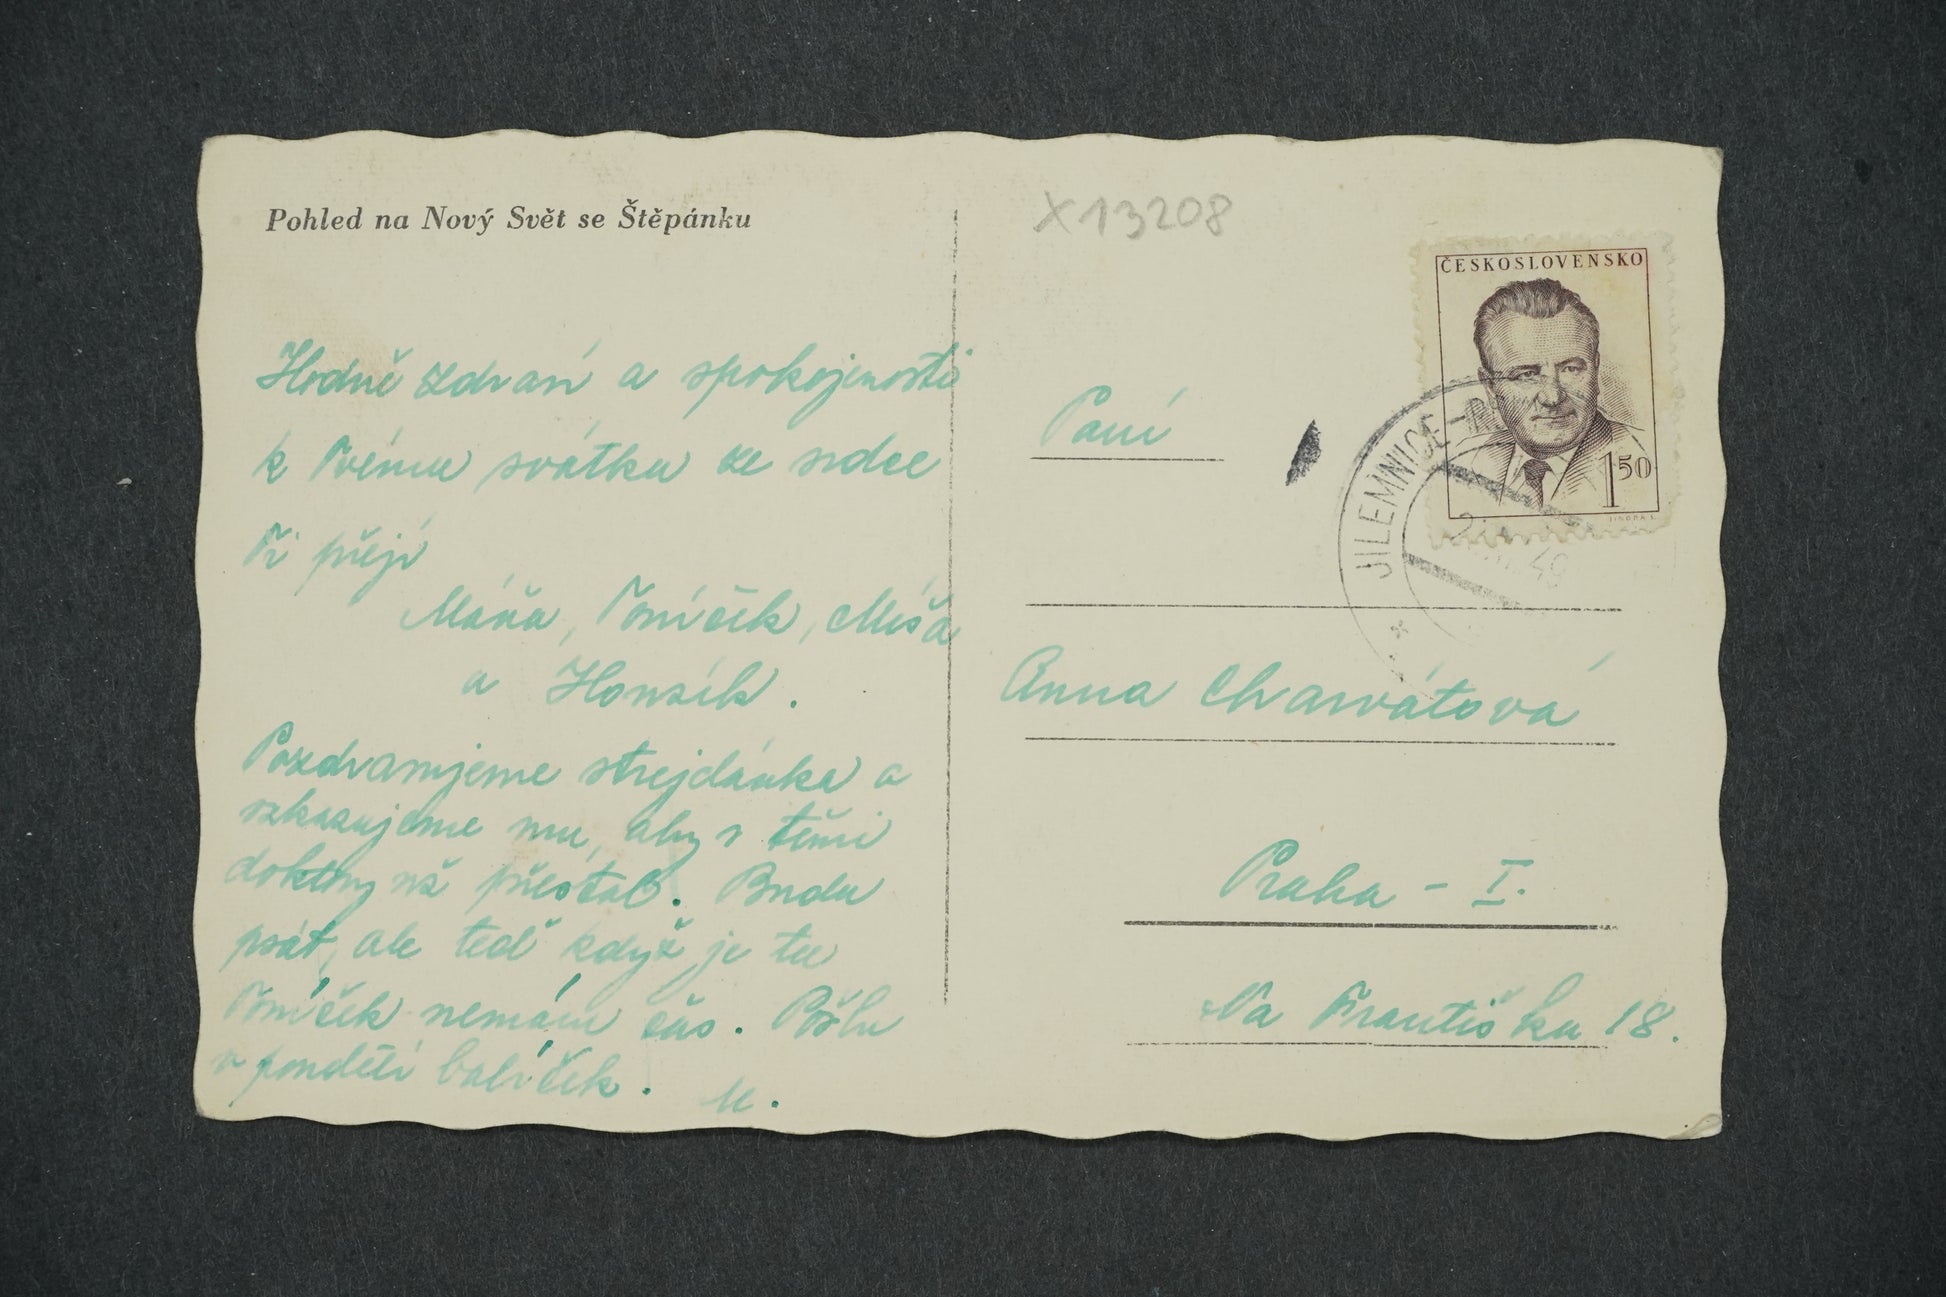 Pohled na Nový Svět se Štěpánku
Hodně zdraví a spokojenosti
k Tvému svátku ze srdce
Ti přejí
Máňa, Toníček, Míša
a Honzík.
Pozdravujeme strejdánka a
vzkazujeme mu, aby s těmi
doktory už přestal. Budu
psát, ale teď když je tu
Toníček nemám čas. Pošlu
v pondělí balíček. M.
X13208
ČESKOSLOVENSKO
1 50
JILEMNICE
49
Paní
Anna Charvátová
Praha - I.
Na Františku 18.